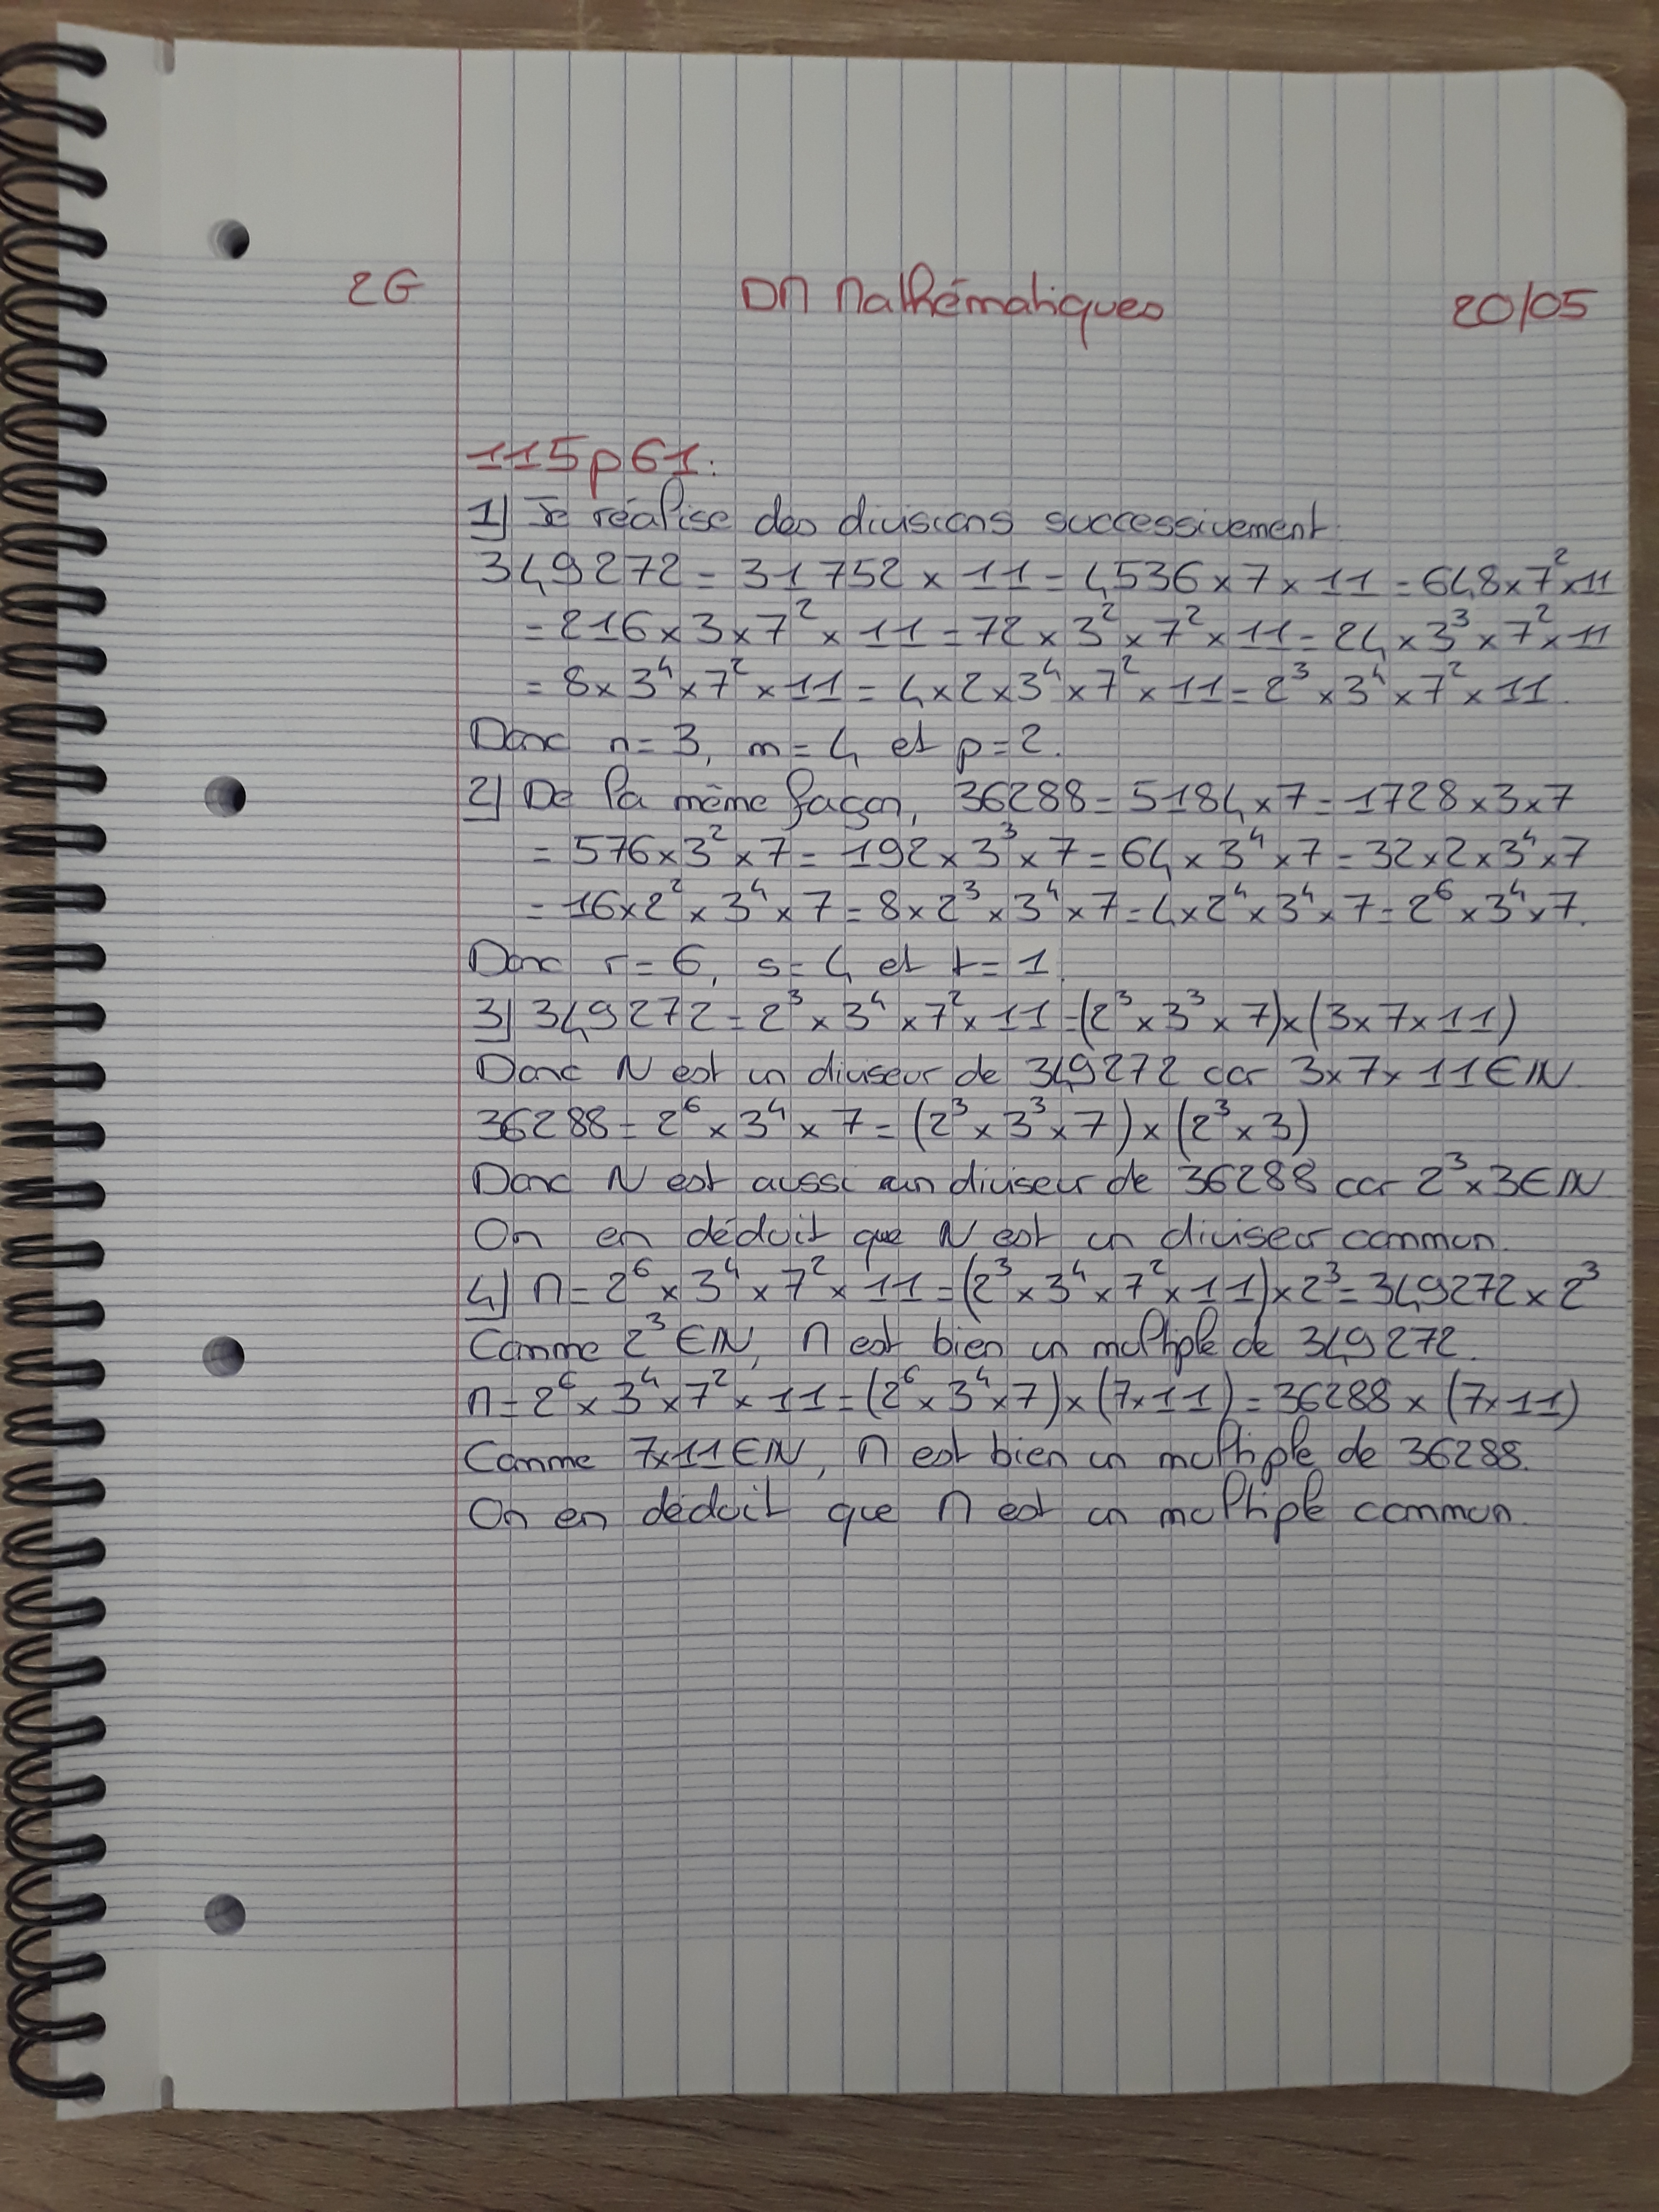 2G DM Mathématiques 20/05
115p61:
1) Je réalise des divisions successivement.
349272 = 31752 × 11 = 4536 × 7 × 11 = 648 × 7² × 11
= 216 × 3 × 7² × 11 = 72 × 3² × 7² × 11 = 24 × 3³ × 7² × 11
= 8 × 3⁴ × 7² × 11 = 4 × 2 × 3⁴ × 7² × 11 = 2³ × 3⁴ × 7² × 11.
Donc n = 3, m = 4 et p = 2.
2) De la même façon, 36288 = 5184 × 7 = 1728 × 3 × 7
= 576 × 3² × 7 = 192 × 3³ × 7 = 64 × 3⁴ × 7 = 32 × 2 × 3⁴ × 7
= 16 × 2² × 3⁴ × 7 = 8 × 2³ × 3⁴ × 7 = 4 × 2⁴ × 3⁴ × 7 = 2⁶ × 3⁴ × 7.
Donc r = 6, s = 4 et t = 1.
3) 349272 = 2³ × 3⁴ × 7² × 11 = (2³ × 3³ × 7) × (3 × 7 × 11)
Donc N est un diviseur de 349272 car 3 × 7 × 11 ∈ ℕ.
36288 = 2⁶ × 3⁴ × 7 = (2³ × 3³ × 7) × (2³ × 3)
Donc N est aussi un diviseur de 36288 car 2³ × 3 ∈ ℕ
On en déduit que N est un diviseur commun.
4) M = 2⁶ × 3⁴ × 7² × 11 = (2³ × 3⁴ × 7² × 11) × 2³ = 349272 × 2³
Comme 2³ ∈ ℕ, M est bien un multiple de 349272.
M = 2⁶ × 3⁴ × 7² × 11 = (2⁶ × 3⁴ × 7) × (7 × 11) = 36288 × (7 × 11)
Comme 7 × 11 ∈ ℕ, M est bien un multiple de 36288.
On en déduit que M est un multiple commun.